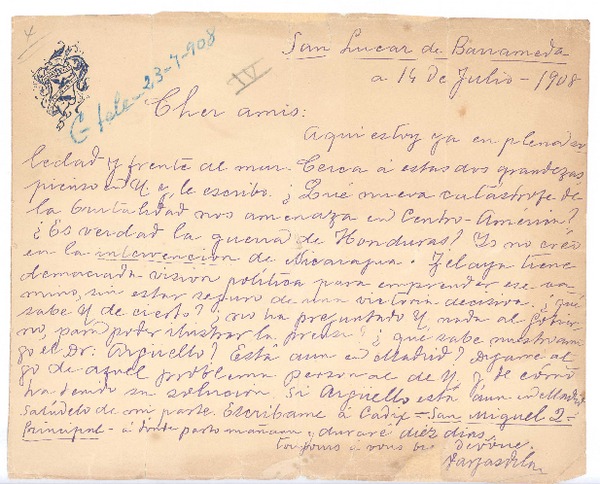 San Lucar de Barrameda
a 14 de Julio - 1908
C tele - 23-7-908
IV
Cher amis:
Aqui estoy ya en plena so
ledad y frente al mar. Cerca á estas dos grandezas,
pienso en V y le escribo. ¿Qué nueva catástrofe de
la brutalidad nos amenaza en Centro-America?
¿Es verdad la guerra de Honduras? Yo no creo
en la intervencion de Nicaragua. Zelaya tiene
demaciada vision politica para emprender ese ca
mino, sin estar seguro de una victoria decisiva. ¿qué
sabe V de cierto?, no ha preguntado V nada al Gobier
no, para poder ilustrar la prensa? ¿que sabe nuestro am
go el Dr. Argüello? Está aun en Madrid? Digame al
go de aquel problema personal de V y de cómo
ha tenido su solucion. Si Argüello está aun en Madrid
salúdelo de mi parte. Escribame á Cadix - San Miguel 2-
Principal - á donde parto mañana y duraré diez dias.
Toujours á vous bien dévoué.
Vargasvila